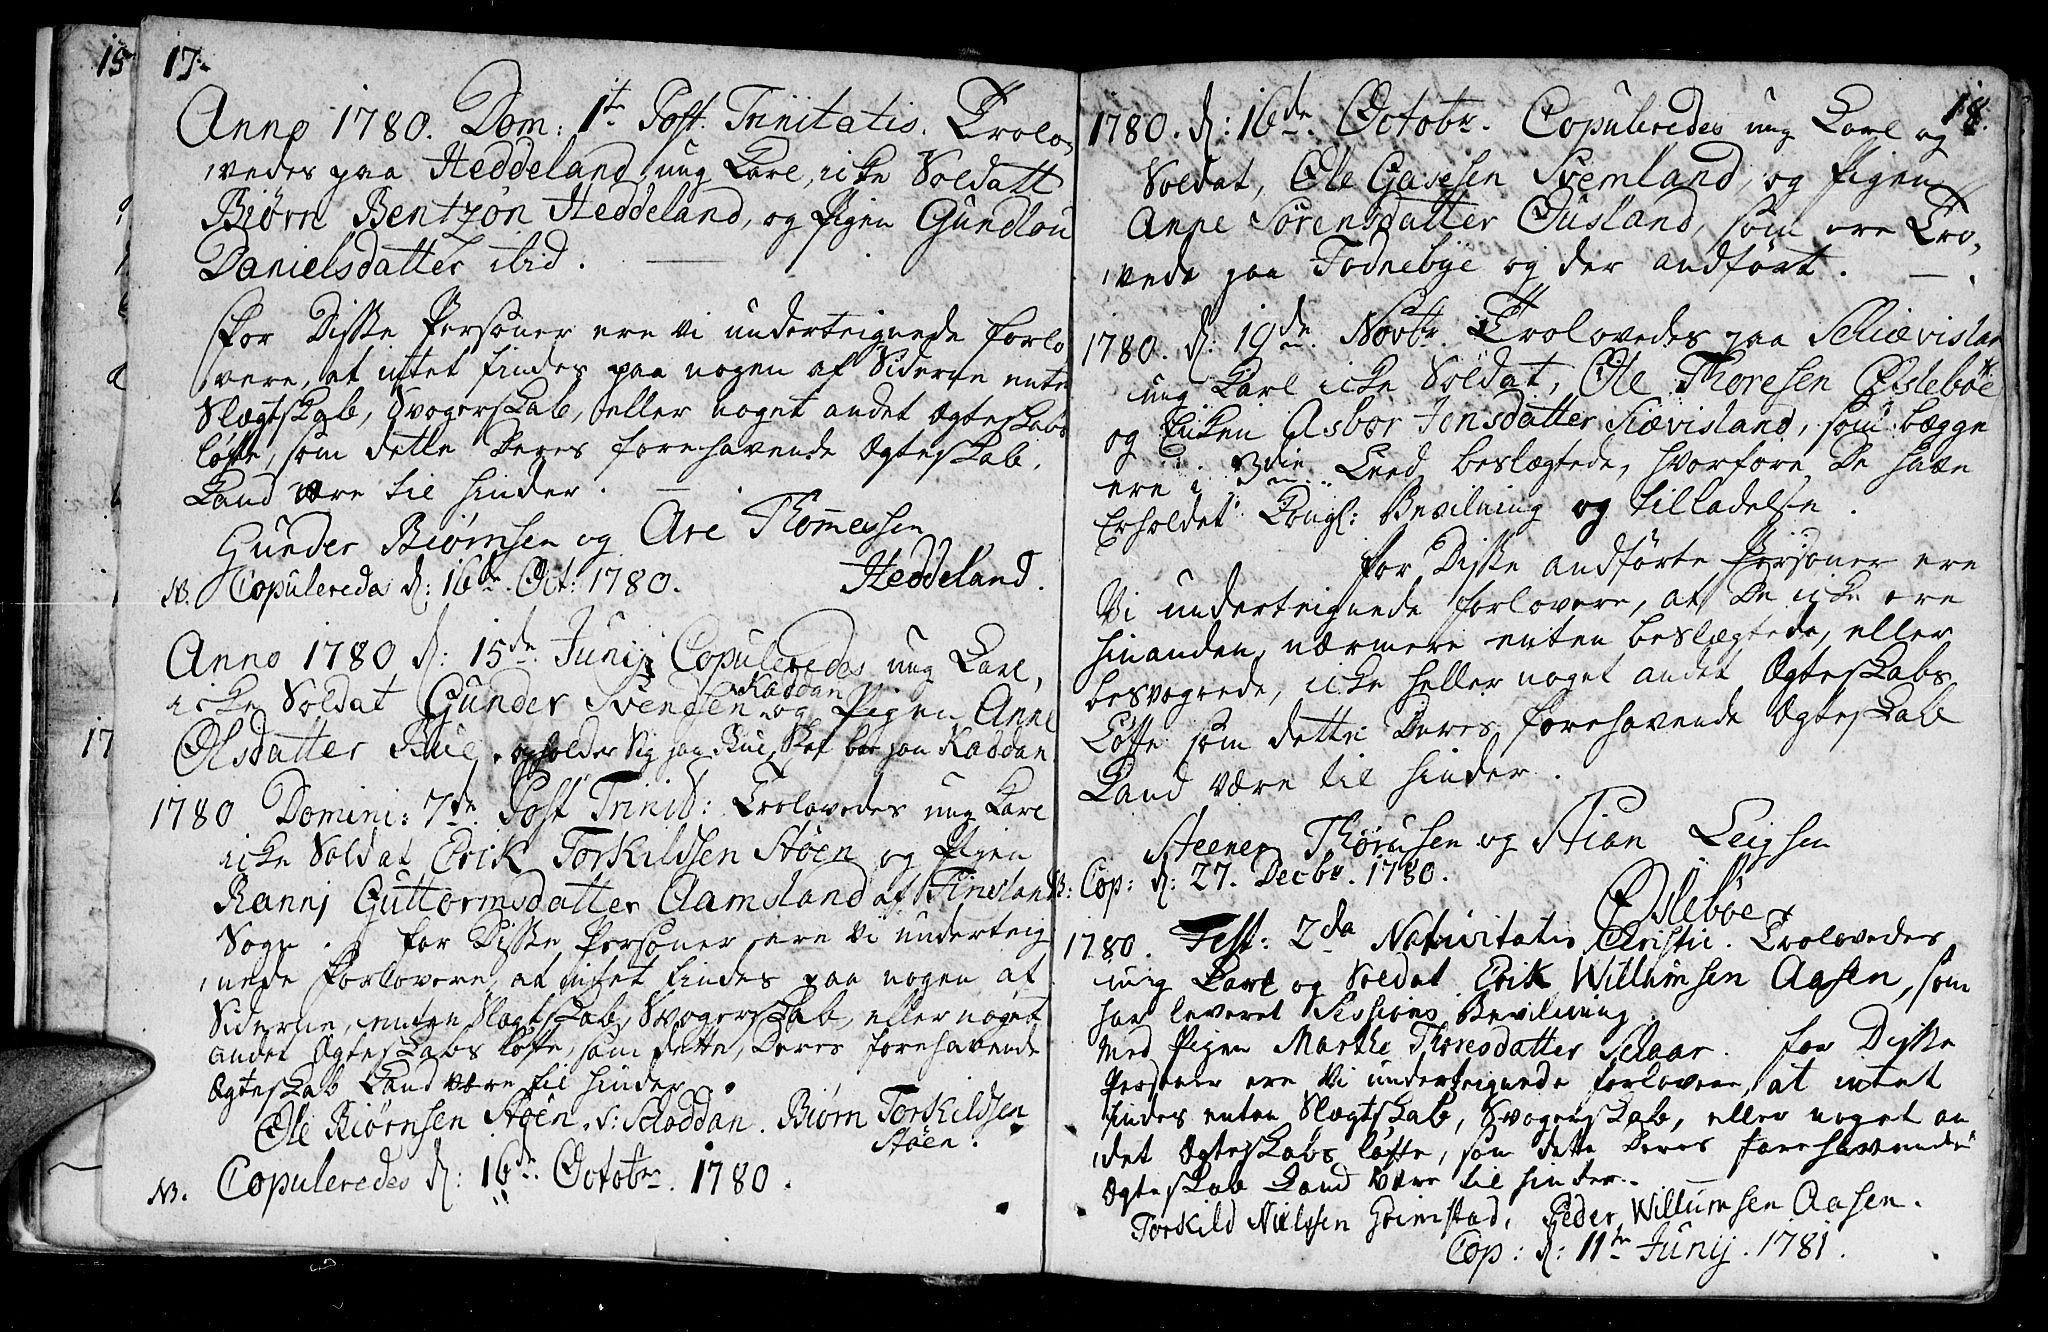 15
17.
Anno 1780. Dom: 1te Post. Trinitatis. Trolo,
,vedes paa Heddeland ung Karl, icke Soldatt
Biørn Bentzøn Heddeland, og Pigen Gundlou
Danielsdatter ibid.
For Disse Personer ere vi underteignede forlo
,vere, at intet findes paa nogen af Siderne enten
Slægtskab, Svogerskab, eller noget andet Ægteskabs
løfte, som dette Deres forehavende Ægteskab,
Kand være til hinder.
Gunder Biørnsen og Are Thomessen
Heddeland.
N. Copuleredes d: 16de Oct: 1780.
Anno 1780 d: 15de Junij Copuleredes ung Karl,
icke Soldat Gunder Svendsen Kaddan og Pigen Anne
Olsdatter Rue, opholder Sig paa Rue, skal boe paa Kaddan
17
1780 Domini: 7de Post Trinit: Trolovedes ung Karl
icke Soldat Erik Torkildsen Støen og Pigen
Rannj Guttormsdatter Aamsland af Finsland
Sogn. For Disse Personer ere vi underteig
,nede Forlovere, at intet findes paa nogen af
Siderne, enten Slægtskab, Svogerskab, eller noget
andet Ægteskabs løfte, som dette, Deres forehavende
Ægteskab Kand være til hinder.
Ole Biørnsen Støen. Biørn Torkildsen
Støen.
NB. Copuleredes d: 16de Octobr. 1780.
18.
1780. d: 16de Octobr. Copuleredes ung Karl og
Soldat, Ole Gasesen Svemland, og Pigen
Anne Sørensdatter Øusland, som ere Tro,
,vede paa Todnebye og der andført.
1780. d: 19de Novbr. Trolovedes paa Schiævislan
ung Karl icke Soldat, Ole Thoresen Øslebøe
og Enken Asbor Jensdatter Siævisland, som begge
ere i 3die Leed beslægtede, hvorfore De haae
Erholdet Kongl: Bevilning og tilladelse.
For Disse andførte Personer ere
Vi underteignede forlovere, at De icke ere
hinanden nærmere enten beslægtede, eller
besvogrede, icke heller noget andet Ægteskabs
Løfte som dette Deres forehavende Ægteskab
Kand være til hinder.
Steener Thorusen og Stian Leigsen
Øslebøe
NB: Cop: d: 27. Decbr. 1780.
1780. Fest: 2da Nativitatis Christi. Trolovedes
ung Karl og Soldat Erik Willumsen Aasen, som
har leveret Sessions Bevilning.
Med Pigen Marthe Thoresdatter Schaar. For Disse
Personer ere Vi underteignede forlovere, at intet
findes enten Slægtskab, Svogerskab, eller noget an
,det Ægteskabs løfte, som dette Deres forehavende
Ægteskab Kand være til hinder.
Torkild Nielssen Grimstad, Peder Willumsen Aasen.
Cop: d: 11te Junij. 1781.